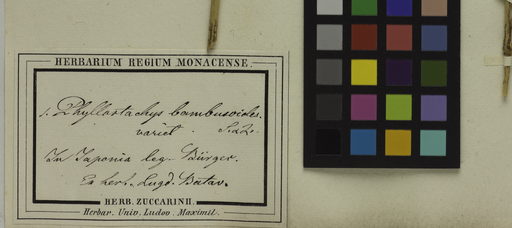 HERBARIUM REGIUM MONACENSE.
1. Phyllostachys bambusoides.
variet. S. et Z.
In Japonia leg. Bürger.
Ex herb. Lugd. Batav.
HERB. ZUCCARINII.
Herbar. Univ. Ludov. Maximil.